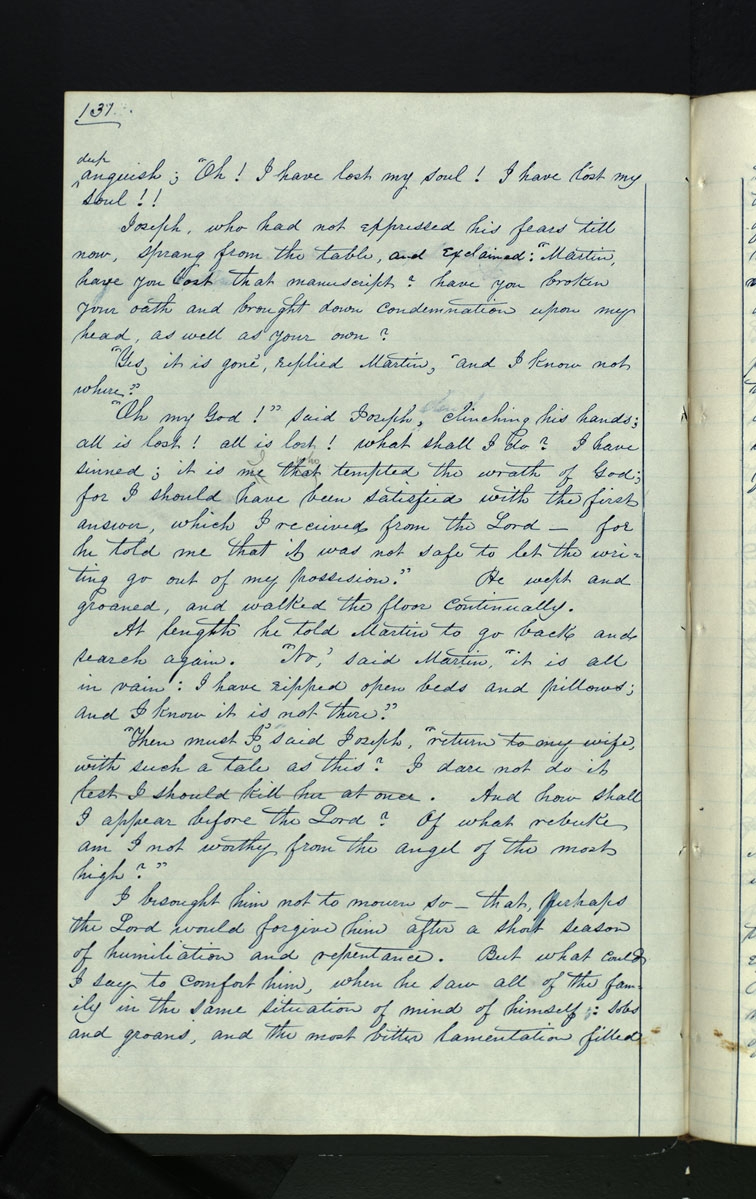 137.
deep
^anguish; "Oh! I have lost my soul! I have lost my
soul!!
Joseph, who had not expressed his fears till
now, sprang from the table, and exclaimed: "Martin,
have you lost that manuscript? have you broken
your oath and brought down condemnation upon my
head, as well as your own?
"Yes, it is gone", replied Martin, "and I know not
where."
"Oh my God!" said Joseph, clinching his hands;
all is lost! all is lost! what shall I do? I have
I who
sinned; it is me that tempted the wrath of God;
for I should have been satisfied with the first
answer, which I recieved from the Lord — for
he told me that it was not safe to let the wri=
ting go out of my possesion." He wept and
groaned, and walked the floor continually.
At length he told Martin to go back and
search again. "No", said Martin, "it is all
in vain: I have ripped open beds and pillows;
and I know it is not there."
"Then must I," said Joseph, "return to my wife,
with such a tale as this? I dare not do it
lest I should kill her at once. And how shall
I appear before the Lord? Of what rebuke
am I not worthy from the angel of the most
high?"
I besought him not to mourn so — that, perhaps
the Lord would forgive him after a short season
of humiliation and repentance. But what could
I say to comfort him, when he saw all of the fam=
ily in the same situation of mind of himself; : sobs
and groans, and the most bitter lamentation filled